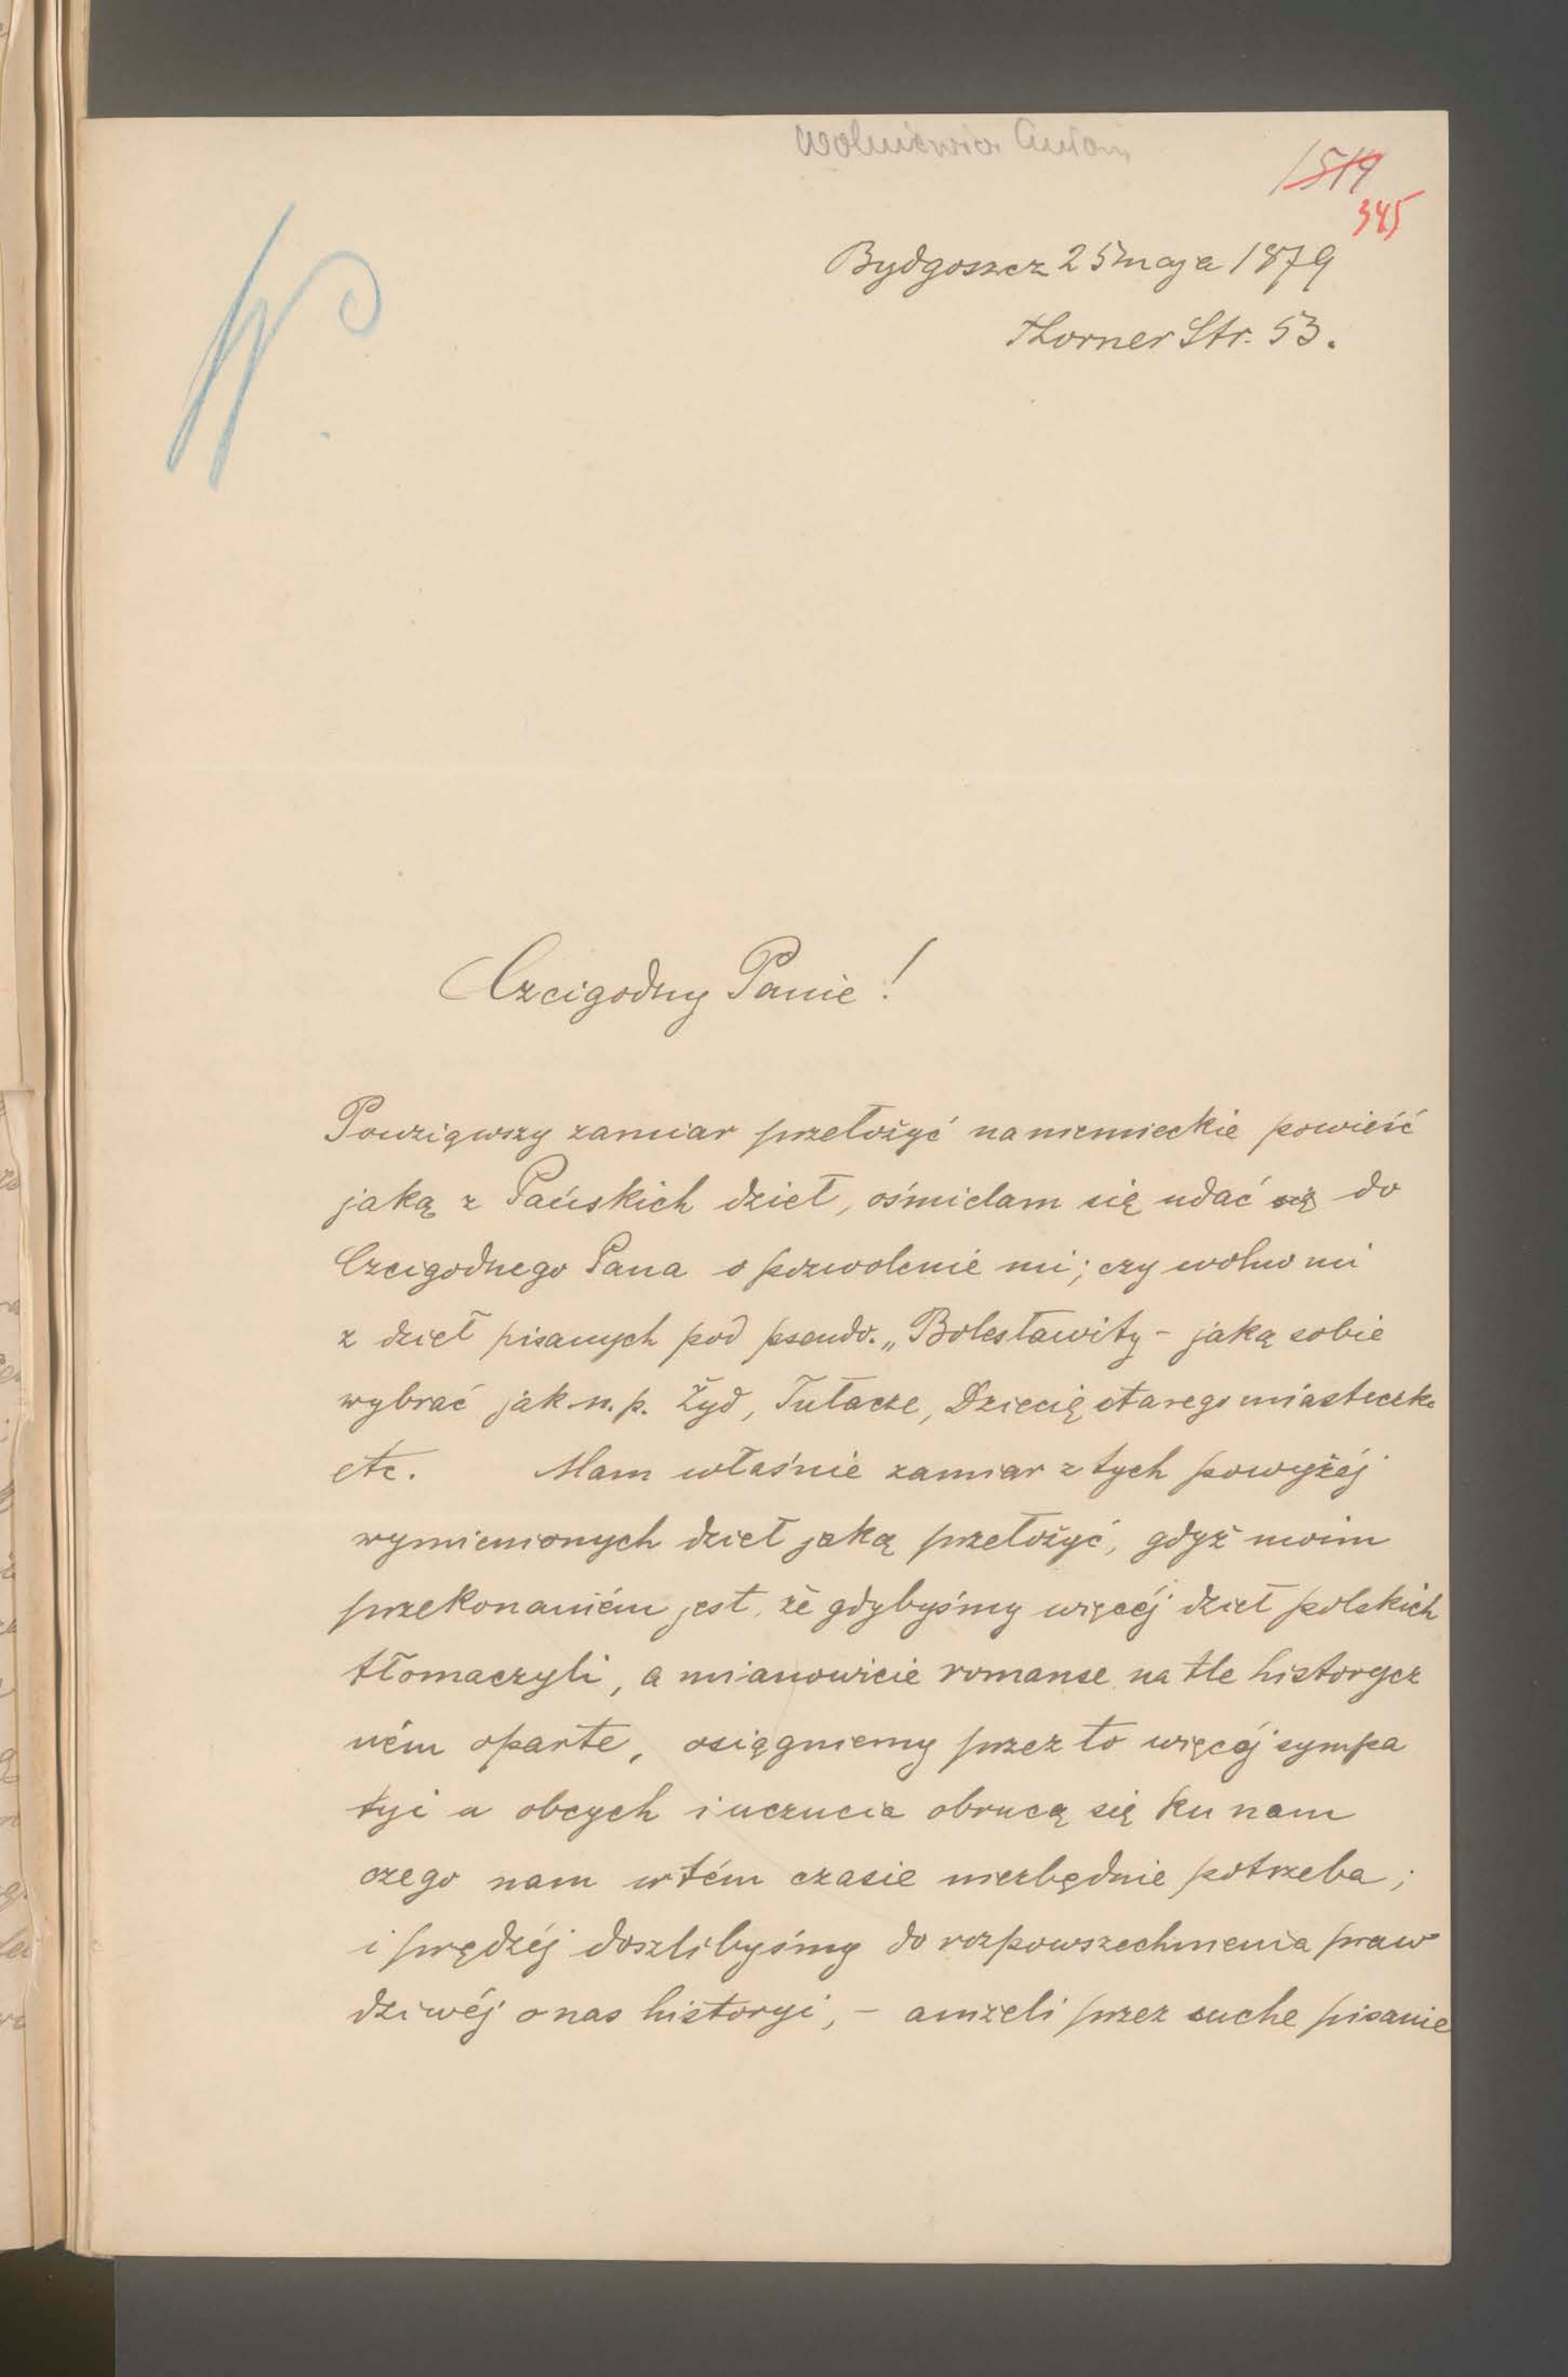 Wolniewicz Antoni
1519
345
Bydgoszcz 25 maja 1879
Thorner Str. 53.
W
Czcigodny Panie!
Powziąwszy zamiar przełożyć na niemieckie powieść
jaką z Pańskich dzieł, ośmielam się udać się do
Czcigodnego Pana o pozwolenie mi; czy wolno mi
z dzieł pisanych pod pseudo. „Bolesławity – jaką sobie
wybrać jak n. p. Żyd, Tułacze, Dziecię starego miasteczka
etc. Mam właśnie zamiar z tych powyżéj
wymienionych dzieł jaką przełożyć, gdyż moim
przekonaniém jest, że gdybyśmy więcéj dzieł polskich
tłomaczyli, a mianowicie romanse na tle historycz
ném oparte, osiągniemy przez to więcéj sympa
tyi u obcych i uczucia obrucą się ku nam
czego nam w tém czasie niezbędnie potrzeba;
i prędzéj doszlibyśmy do rozpowszechnienia praw
dziwéj o nas historyi, – aniżeli przez suche pisanie